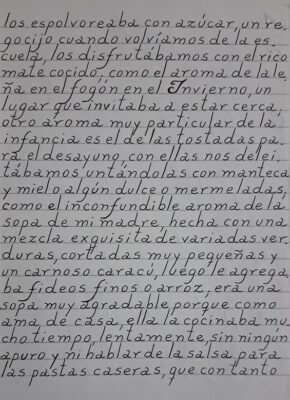 los espolvoreaba con azúcar, un re_
gocijo cuando volvíamos de la es_
cuela, los disfrutábamos con el rico
mate cocido, como el aroma de la le_
ña en el fogón en el Invierno, un
lugar que invitaba a estar cerca,
otro aroma muy particular de la
infancia es el de las tostadas pa_
ra el desayuno, con ellas nos delei_
tábamos, untándolas con manteca
y miel o algún dulce o mermeladas,
como el inconfundible aroma de la
sopa de mi madre, hecha con una
mezcla exquisita de variadas ver_
duras, cortadas muy pequeñas y
un carnoso caracú, luego le agrega_
ba fideos finos o arroz, era una
sopa muy agradable porque como
ama de casa, ella la cocinaba mu_
cho tiempo, lentamente, sin ningún
apuro y ni hablar de la salsa para
las pastas caseras, que con tanto